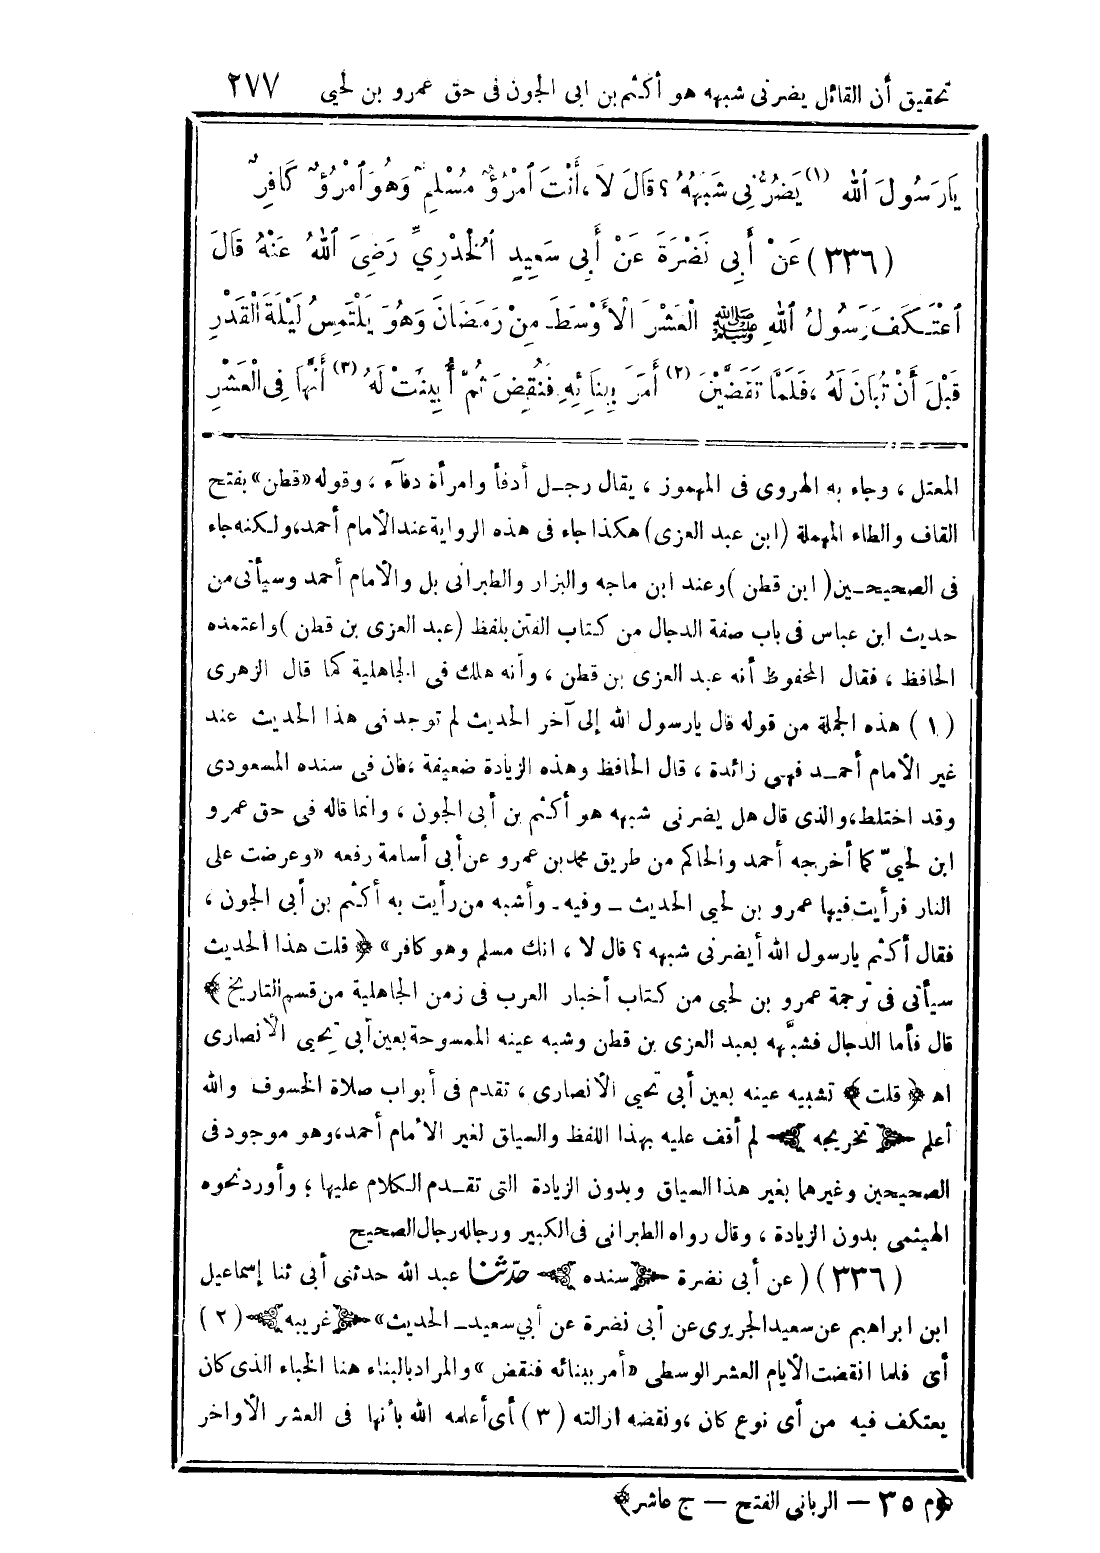 تحقيق أن القائل يضرنى شبهه هو أكثم بن ابى الجون فى حق عمرو بن لحيى ٢٧٧
يَارَسُولَ اللهِ (١) يَضُرُّنِى شَبَهُهُ؟ قَالَ لَا، أَنْتَ امْرُؤٌ مُسْلِمٌ وَهُوَ امْرُؤٌ كَافِرٌ
(٣٣٦) عَنْ أَبِى نَضْرَةَ عَنْ أَبِى سَعِيدٍ الْخُدْرِىِّ رَضِىَ اللهُ عَنْهُ قَالَ
اعْتَكَفَ رَسُولُ اللهِ ﷺ الْعَشْرَ الْأَوْسَطَ مِنْ رَمَضَانَ وَهُوَ يَلْتَمِسُ لَيْلَةَ الْقَدْرِ
قَبْلَ أَنْ تُبَانَ لَهُ، فَلَمَّا تَقَضَّيْنَ (٢) أَمَرَ بِبِنَائِهِ فَنُقِضَ ثُمَّ أُبِينَتْ لَهُ (٣) أَنَّهَا فِى الْعَشْرِ
المعتل، وجاء به الهروى فى المهموز، يقال رجل أدفأ وامرأة دفآء، وقوله «قطن» بفتح
القاف والطاء المهملة (ابن عبد العزى) هكذا جاء فى هذه الرواية عند الأمام أحمد، ولكنه جاء
فى الصحيحين (ابن قطن) وعند ابن ماجه والبزار والطبرانى بل والأمام أحمد وسيأتى من
حديث ابن عباس فى باب صفة الدجال من كتاب الفتن بلفظ (عبد العزى بن قطن) واعتمده
الحافظ، فقال المحفوظ أنه عبد العزى بن قطن، وأنه هلك فى الجاهلية كما قال الزهرى
(١) هذه الجملة من قوله قال يارسول الله إلى آخر الحديث لم توجد فى هذا الحديث عند
غير الأمام أحمد فهى زائدة، قال الحافظ وهذه الزيادة ضعيفة، فان فى سنده المسعودى
وقد اختلط، والذى قال هل يضرنى شبهه هو أكثم بن أبى الجون، وانما قاله فى حق عمرو
ابن لحىّ كما أخرجه أحمد والحاكم من طريق محمد بن عمرو عن أبى أسامة رفعه «وعرضت على
النار فرأيت فيها عمرو بن لحيى الحديث ــ وفيه ــ وأشبه من رأيت به أكثم بن أبى الجون،
فقال أكثم يارسول الله أيضرنى شبهه؟ قال لا، انك مسلم وهو كافر» ﴿قلت هذا الحديث
سيأتى فى ترجمة عمرو بن لحيى من كتاب أخبار العرب فى زمن الجاهلية من قسم التاريخ﴾
قال فأما الدجال فشبَّهه بعبد العزى بن قطن وشبه عينه الممسوحة بعين أبى تحيى الأنصارى
اه ﴿قلت﴾ تشبيه عينه بعين أبى تحيى الأنصارى، تقدم فى أبواب صلاة الخسوف والله
أعلم ﴿تخريجه﴾ لم أقف عليه بهذا اللفظ والسياق لغير الأمام أحمد، وهو موجود فى
الصحيحين وغيرهما بغير هذا السياق وبدون الزيادة التى تقدم الكلام عليها؛ وأورد نحوه
الهيثمى بدون الزيادة، وقال رواه الطبرانى فى الكبير ورجاله رجال الصحيح
(٣٣٦) (عن أبى نضرة ﴿سنده﴾ حدّثنا عبد الله حدثنى أبى ثنا إسماعيل
ابن ابراهيم عن سعيد الجريرى عن أبى نضرة عن أبي سعيد ــ الحديث» ﴿غريبه﴾ (٢)
أى فلما انقضت الأيام العشر الوسطى «أمر ببنائه فنقض» والمراد بالبناء هنا الخباء الذى كان
يعتكف فيه من أى نوع كان، ونقضه ازالته (٣) أى أعلمه الله بأنها فى العشر الأواخر
﴿م ٣٥ — الربانى الفتح — ج عاشر﴾